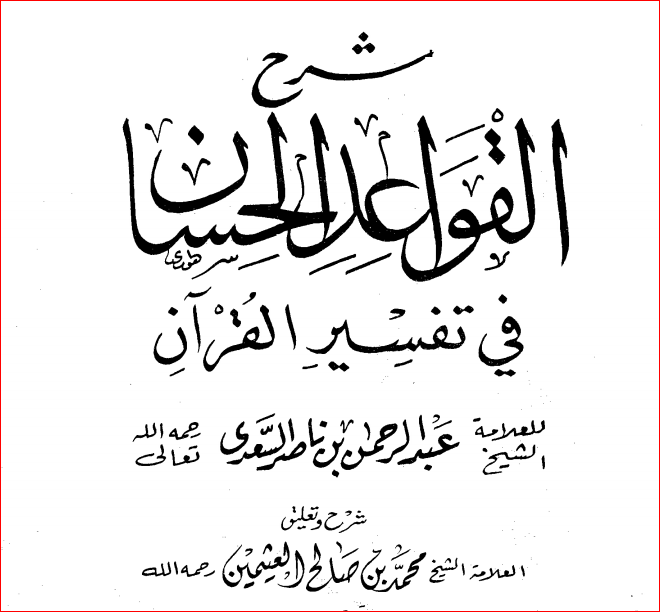 شرح
القَوَاعِدِ الحِسَان
في تفسِيرِ القُرْآنِ
للعلامة الشيخ عَبْد الرحمن بن ناصر السَّعْدي رحمه الله تعالى
شرح وتعليق
العلامة الشيخ محمَّد بن صالح العثيمين رحمه الله